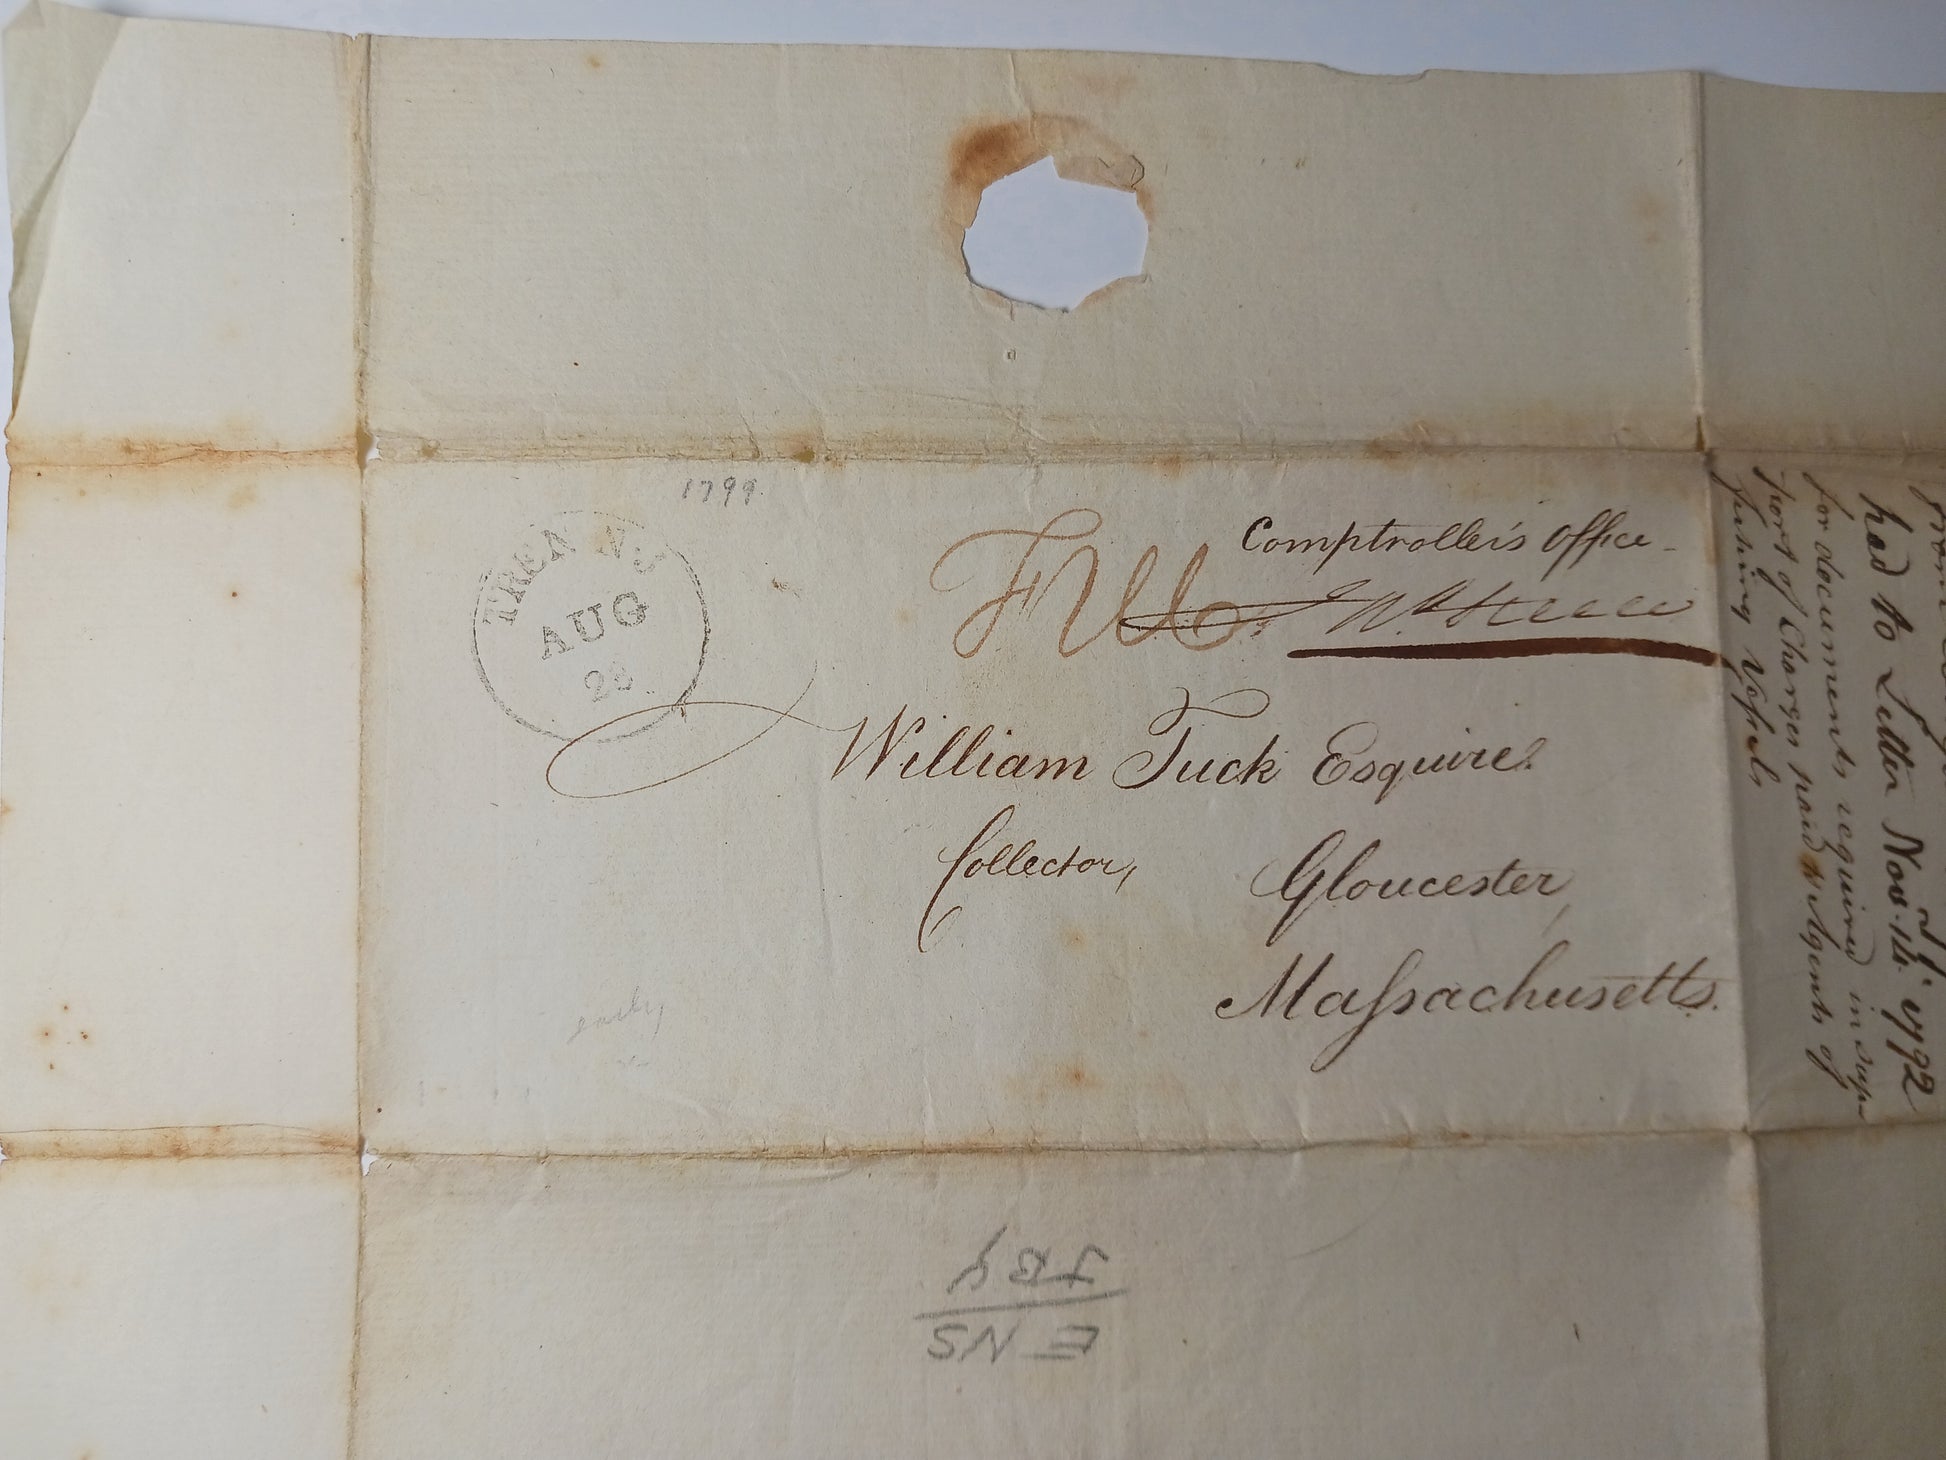 1799
TREN NJ
AUG
28
Comptroller's Office
Free
Jno. Steele
William Tuck Esquire.
Collector,
Gloucester
Massachusetts.
had to Letter Nov. 14. 1792
for documents required in sup-
port of Charges paid to Agents of
fishing Vessels
early